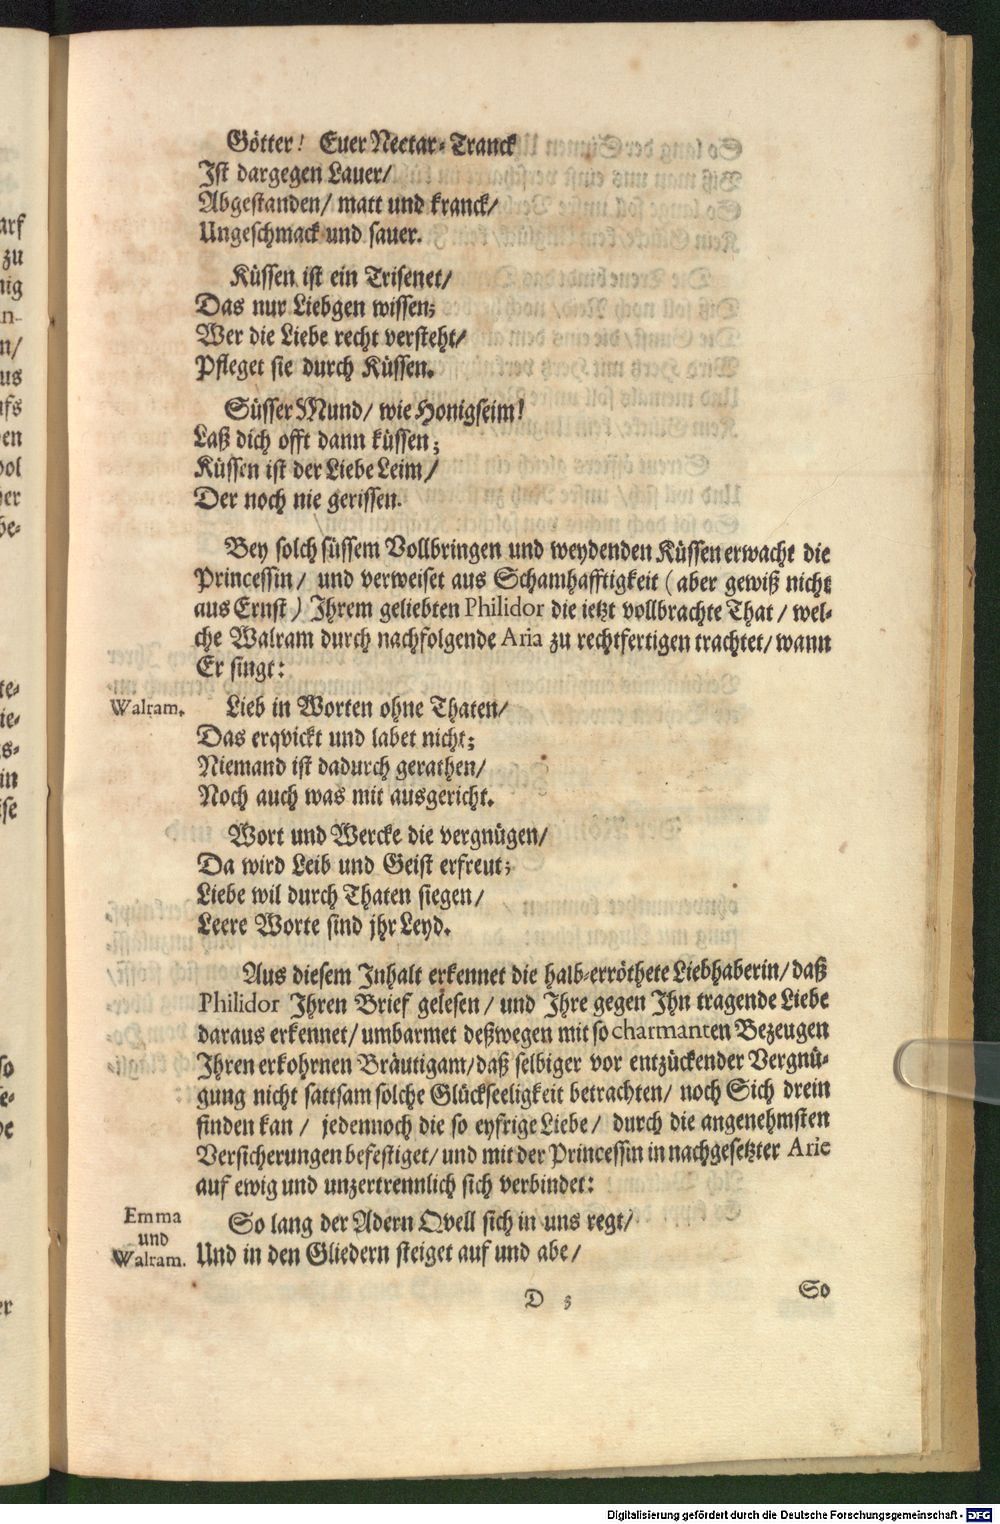 Götter! Euer Nectar-Tranck
Ist dargegen Lauer/
Abgestanden/ matt und kranck/
Ungeschmack und sauer.
Küssen ist ein Trisenet/
Das nur Liebgen wissen;
Wer die Liebe recht versteht/
Pfleget sie durch Küssen.
Süsser Mund/ wie Honigseim!
Laß dich offt dann küssen;
Küssen ist der Liebe Leim/
Der noch nie gerissen.
Bey solch süssem Vollbringen und weydenden Küssen erwacht die
Princessin/ und verweiset aus Schamhafftigkeit (aber gewiß nicht
aus Ernst) Ihrem geliebten Philidor die ietzt vollbrachte That/ wel-
che Walram durch nachfolgende Aria zu rechtfertigen trachtet/ wann
Er singt:
Walram. Lieb in Worten ohne Thaten/
Das erqvickt und labet nicht;
Niemand ist dadurch gerathen/
Noch auch was mit ausgericht.
Wort und Wercke die vergnügen/
Da wird Leib und Geist erfreut;
Liebe wil durch Thaten siegen/
Leere Worte sind jhr Leyd.
Aus diesem Inhalt erkennet die halb-erröthete Liebhaberin/ daß
Philidor Ihren Brief gelesen/ und Ihre gegen Ihn tragende Liebe
daraus erkennet/ umbarmet deßwegen mit so charmanten Bezeugen
Ihren erkohrnen Bräutigam/ daß selbiger vor entzückender Vergnü-
gung nicht sattsam solche Glückseeligkeit betrachten/ noch Sich drein
finden kan/ jedennoch die so eyfrige Liebe/ durch die angenehmsten
Versicherungen befestiget/ und mit der Princessin in nachgesetzter Arie
auf ewig und unzertrennlich sich verbindet:
Emma
und
Walram.
So lang der Adern Qvell sich in uns regt/
Und in den Gliedern steiget auf und abe/
D 3
So
arf
zu
nig
n/
us
ufs
en
ol
er
be-
te-
ie-
s-
in
ise
so
e-
be
er
Digitalisierung gefördert durch die Deutsche Forschungsgemeinschaft - DFG